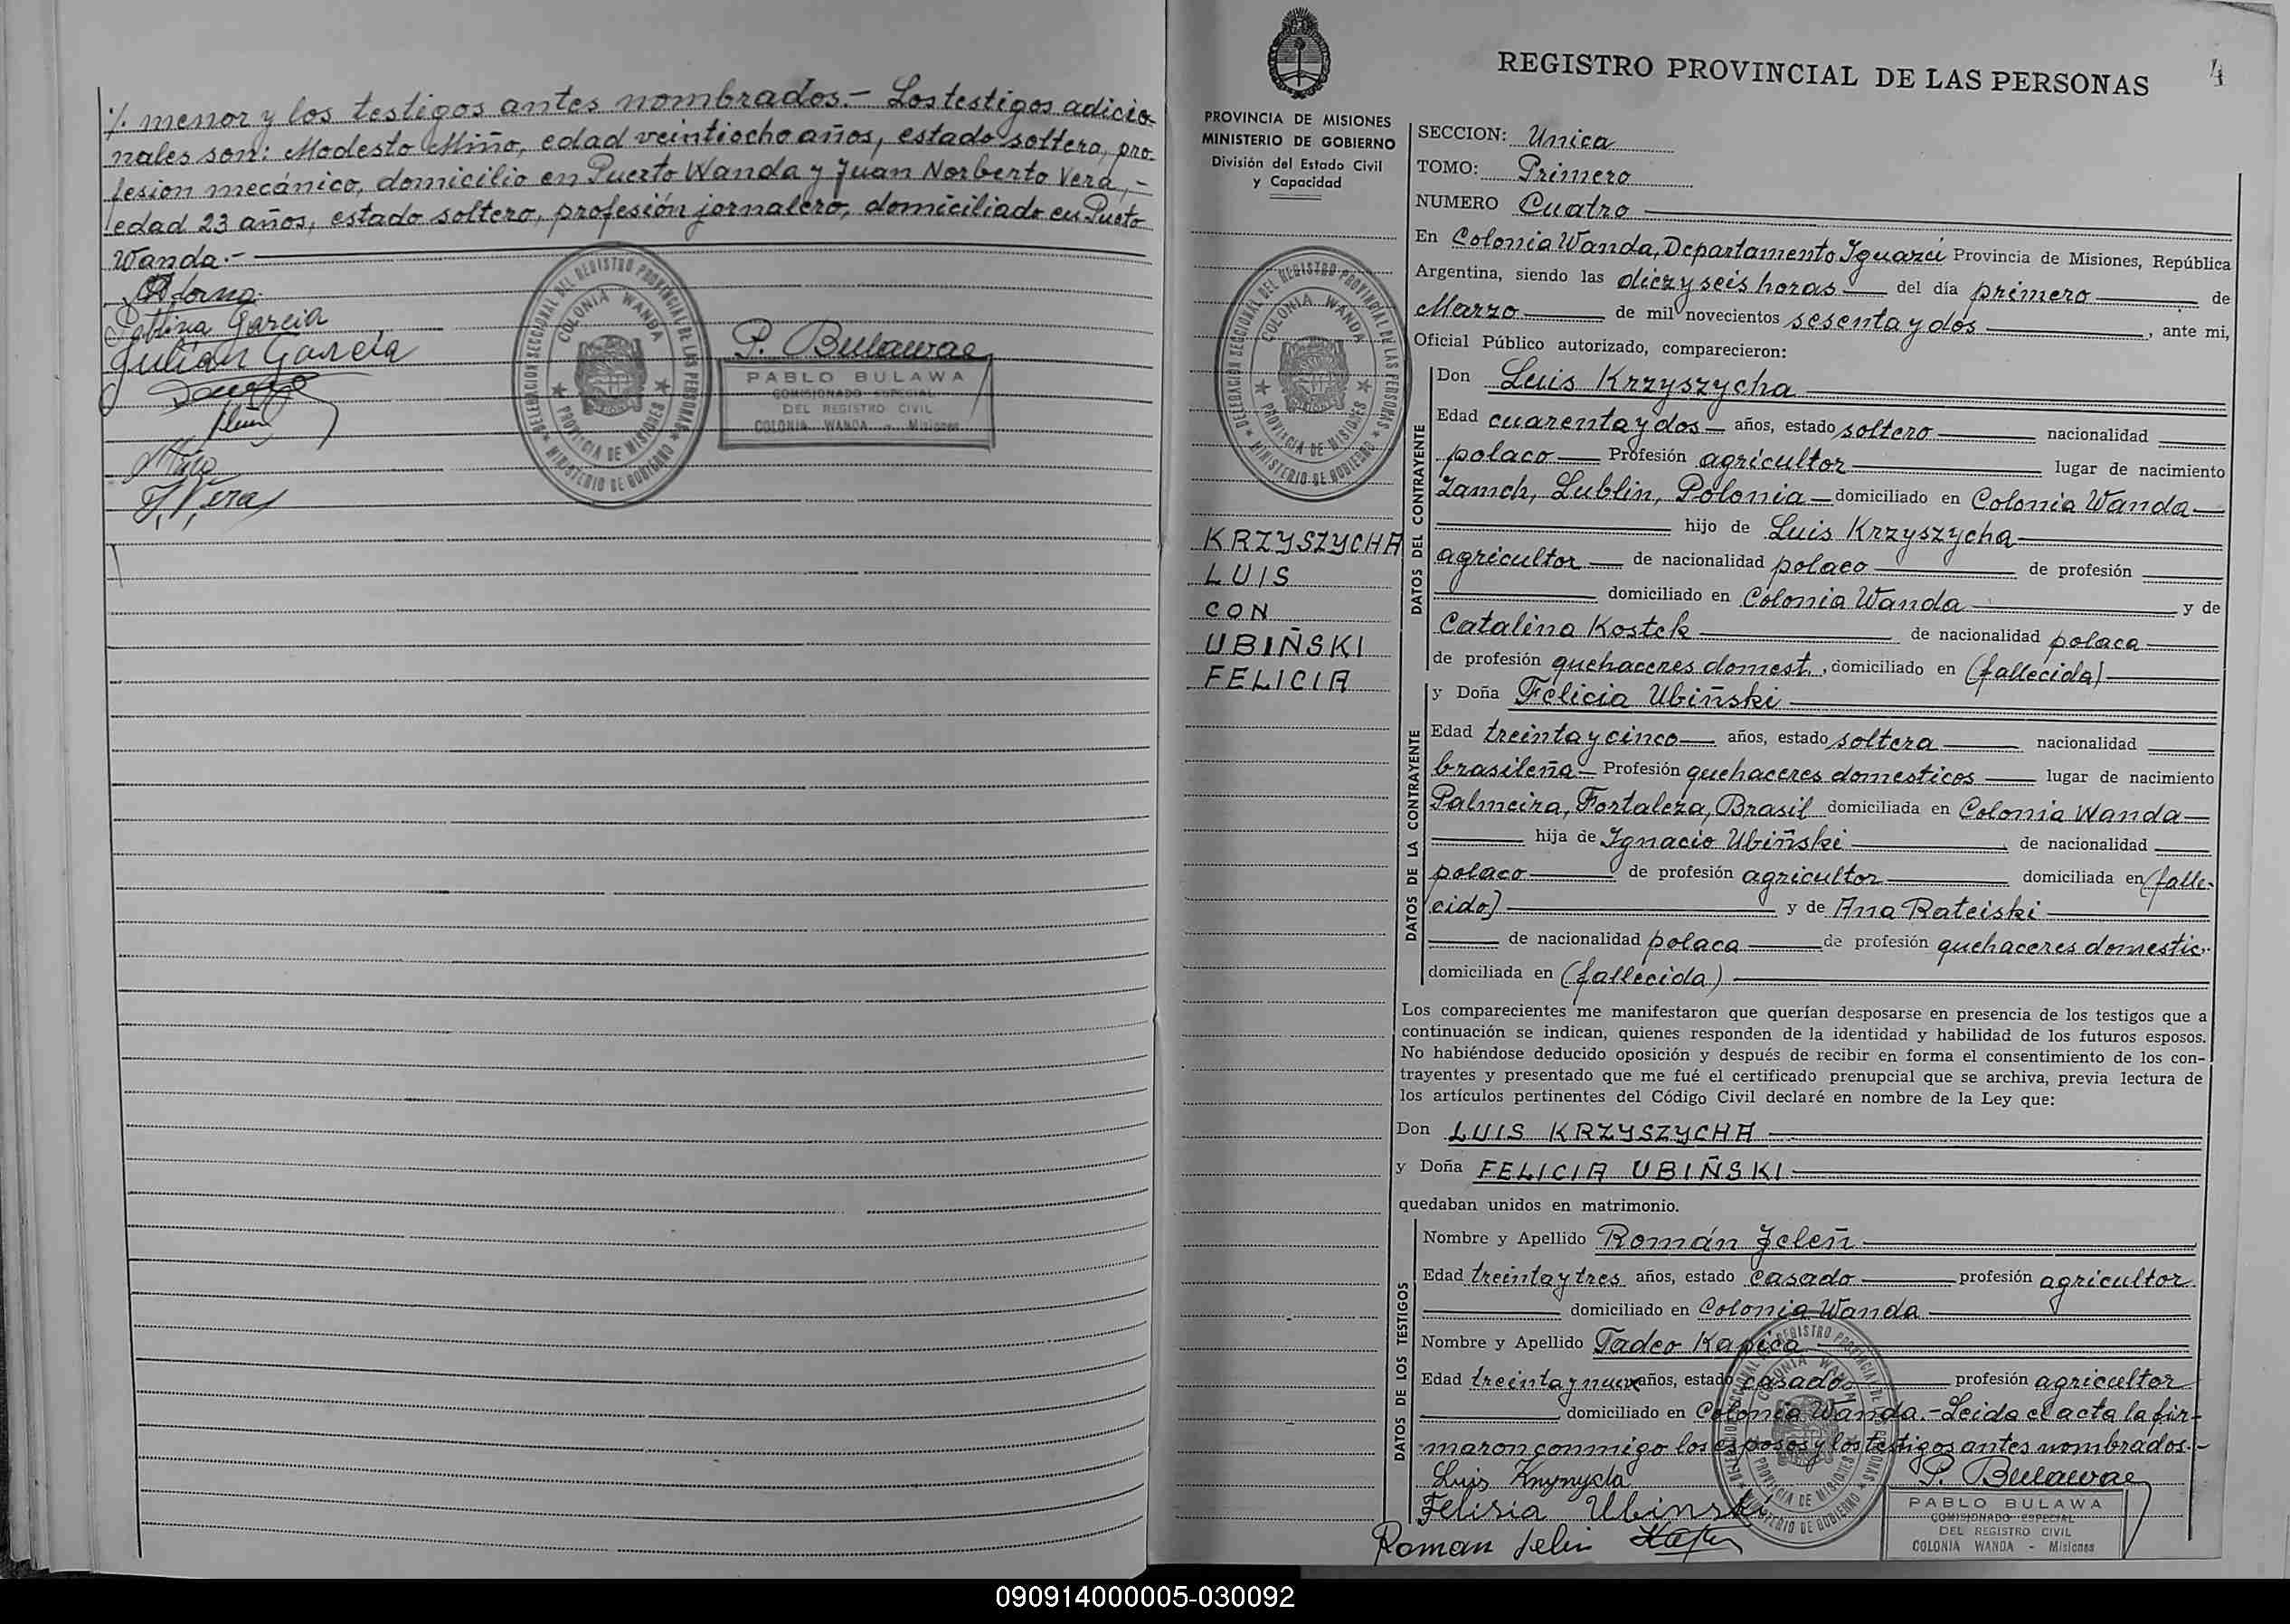 ./. menor y los testigos antes nombrados.- Los testigos adicio-
nales son: Modesto Miño, edad veintiocho años, estado soltero, pro-
fesion mecánico, domicilio en Puerto Wanda y Juan Norberto Vera,-
edad 23 años, estado soltero, profesión jornalero, domiciliado en Pueto
Wanda.-
Garcia
Julian Garcia
Miño
J. N. Vera
DELEGACION SECCIONAL DEL REGISTRO PROVINCIAL DE LAS PERSONAS
COLONIA WANDA
PROVINCIA DE MISIONES
MINISTERIO DE GOBIERNO
P. Bulawa
PABLO BULAWA
COMISIONADO ESPECIAL
DEL REGISTRO CIVIL
COLONIA WANDA - Misiones
REGISTRO PROVINCIAL DE LAS PERSONAS
4
PROVINCIA DE MISIONES
MINISTERIO DE GOBIERNO
División del Estado Civil
y Capacidad
DELEGACION SECCIONAL DEL REGISTRO PROVINCIAL DE LAS PERSONAS
COLONIA WANDA
PROVINCIA DE MISIONES
MINISTERIO DE GOBIERNO
KRZYSZYCHA
LUIS
CON
UBIÑSKI
FELICIA
SECCION: Unica
TOMO: Primero
NUMERO Cuatro
En Colonia Wanda, Departamento Iguazú Provincia de Misiones, República
Argentina, siendo las diez y seis horas del día primero de
Marzo de mil novecientos sesenta y dos, ante mi,
Oficial Público autorizado, comparecieron:
DATOS DEL CONTRAYENTE
Don Luis Krzyszycha
Edad cuarenta y dos años, estado soltero nacionalidad
polaco Profesión agricultor lugar de nacimiento
Zamch, Lublin, Polonia domiciliado en Colonia Wanda
hijo de Luis Krzyszycha
agricultor de nacionalidad polaco de profesión
domiciliado en Colonia Wanda y de
Catalina Kostek de nacionalidad polaca
de profesión quehaceres domest., domiciliado en (fallecida)
DATOS DE LA CONTRAYENTE
y Doña Felicia Ubiñski
Edad treinta y cinco años, estado soltera nacionalidad
brasileña Profesión quehaceres domesticos lugar de nacimiento
Palmeira, Fortaleza, Brasil domiciliada en Colonia Wanda
hija de Ignacio Ubiñski de nacionalidad
polaco de profesión agricultor domiciliada en (falle-
cido) y de Ana Rateiski
de nacionalidad polaca de profesión quehaceres domestic.
domiciliada en (fallecida)
Los comparecientes me manifestaron que querían desposarse en presencia de los testigos que a
continuación se indican, quienes responden de la identidad y habilidad de los futuros esposos.
No habiéndose deducido oposición y después de recibir en forma el consentimiento de los con-
trayentes y presentado que me fué el certificado prenupcial que se archiva, previa lectura de
los artículos pertinentes del Código Civil declaré en nombre de la Ley que:
Don LUIS KRZYSZYCHA
y Doña FELICIA UBIÑSKI
quedaban unidos en matrimonio.
DATOS DE LOS TESTIGOS
Nombre y Apellido Román Jeleñ
Edad treinta y tres años, estado casado profesión agricultor
domiciliado en Colonia Wanda
Nombre y Apellido Tadeo Kapica
Edad treinta y nueve años, estado casado profesión agricultor
domiciliado en Colonia Wanda.- Leida el acta la fir-
maron conmigo los esposos y los testigos antes nombrados.-
Luis
P. Bulawa
Felisia Ubinski
Roman Jelin
DELEGACION SECCIONAL DEL REGISTRO PROVINCIAL DE LAS PERSONAS
COLONIA WANDA
PROVINCIA DE MISIONES
MINISTERIO DE GOBIERNO
PABLO BULAWA
COMISIONADO ESPECIAL
DEL REGISTRO CIVIL
COLONIA WANDA - Misiones
090914000005-030092